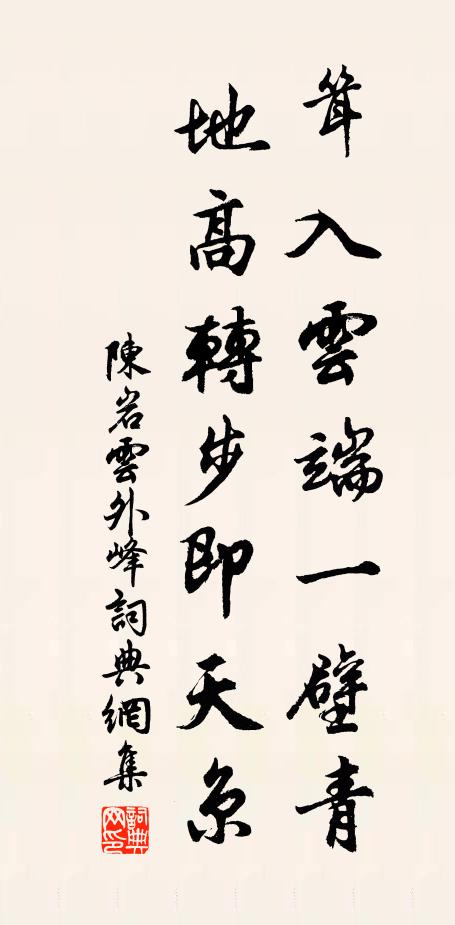 耸入雲端一壁青
地高轉步即天京
陳岩雲外峰詞典網集
詞典网印